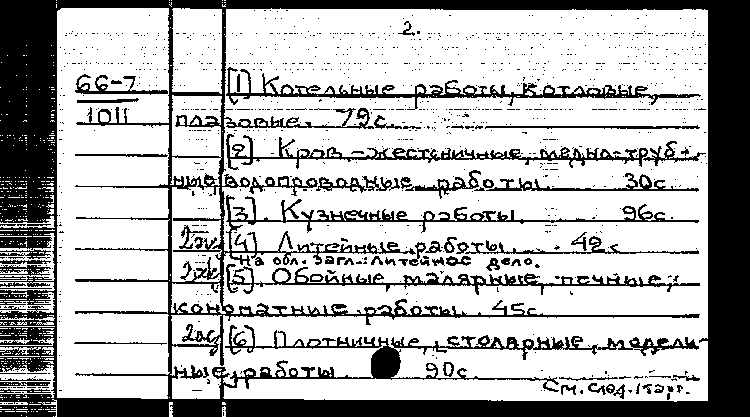 2.
66-7 [1] Котельные работы, котловые,
1011 плазовые. 79с.
[2]. Кров.-жестяничные, медно-труб-
ные, водопроводные работы. 30с.
[3]. Кузнечные работы. 96с.
2эк [4] Литейные работы. 42с
На обл. загл.: Литейное дело.
2эк [5]. Обойные, малярные, печные,
конопатные работы. 45с.
2эк [6] Плотничные, столярные, модель-
ные, работы. 90с.
См. след. 1 карт.